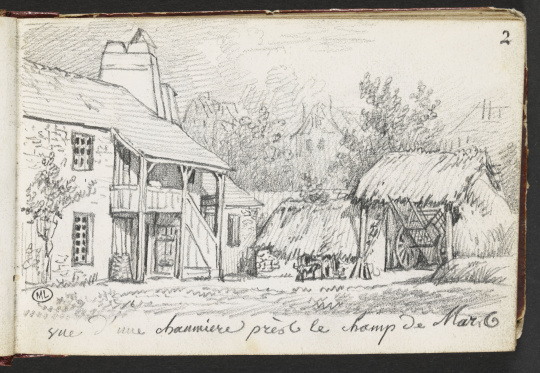 2
ML
vue d'une chaumiere près le champ de Mars